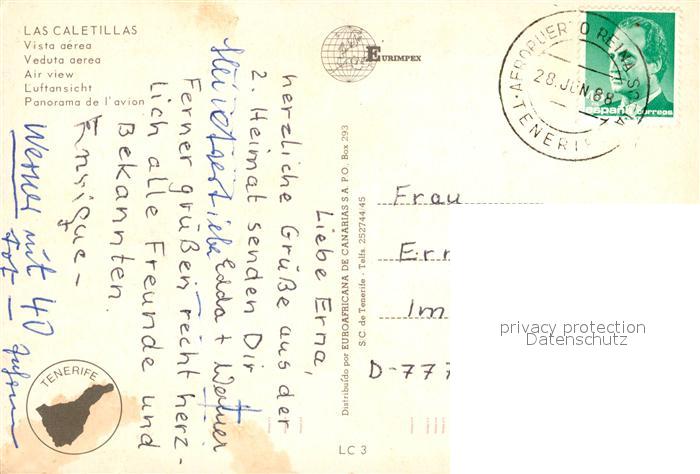 LAS CALETILLAS
Vista aérea
Veduta aerea
Air view
Luftansicht
Panorama de l'avion
EURIMPEX
AEROPUERTO REINA SOFIA
28.JUN.88
TENERIFE
españa correos
Liebe Erna,
herzliche Grüße aus der
2. Heimat senden Dir
Liebe Edda + Werner
Ferner grüßen recht herz-
lich alle Freunde und
Bekannten.
Enrique -
Werner mit 40
tot -
TENERIFE
Distribuído por EUROAFRICANA DE CANARIAS S A. P.O. Box 293
S.C. de Tenerife - Telfs. 252744/45
Frau
Err
Im
D-777
privacy protection
Datenschutz
LC 3